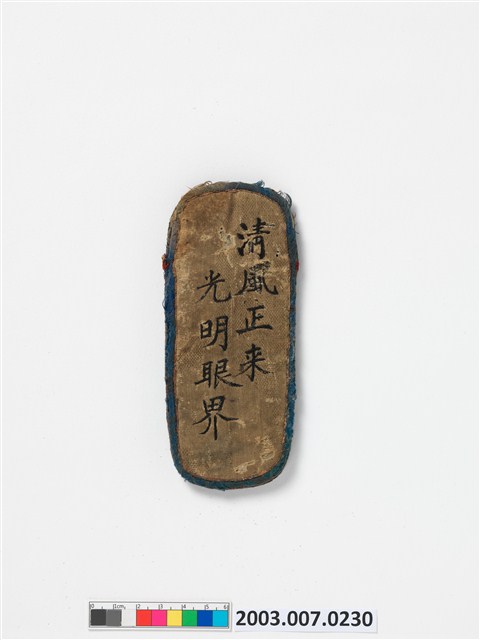 清風正来
光明眼界
0 1cm 2 3 4 5 6
2003.007.0230